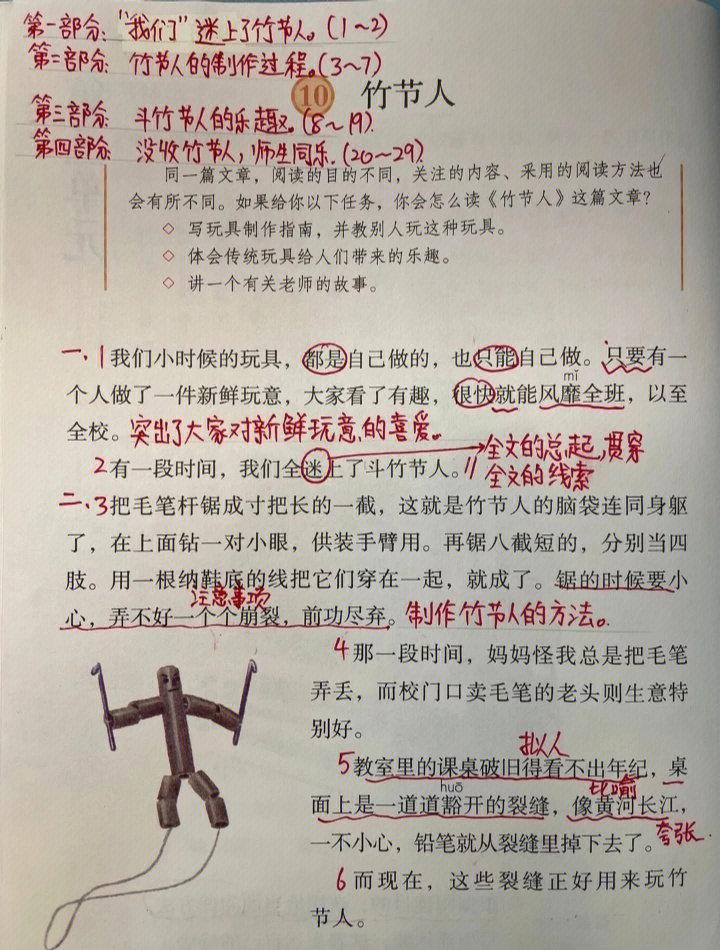 第一部分："我们"迷上了竹节人。(1～2)
第二部分：竹节人的制作过程。(3～7)
10 竹节人
第三部分：斗竹节人的乐趣。(8～19)
第四部分：没收竹节人，师生同乐。(20～29)
同一篇文章，阅读的目的不同，关注的内容、采用的阅读方法也
会有所不同。如果给你以下任务，你会怎么读《竹节人》这篇文章？
◇ 写玩具制作指南，并教别人玩这种玩具。
◇ 体会传统玩具给人们带来的乐趣。
◇ 讲一个有关老师的故事。
一、1我们小时候的玩具，都是自己做的，也只能自己做。只要有一
mǐ
个人做了一件新鲜玩意，大家看了有趣，很快就能风靡全班，以至
全校。突出了大家对新鲜玩意的喜爱。
2有一段时间，我们全迷上了斗竹节人。∥
全文的总起，贯穿
全文的线索
二、3把毛笔杆锯成寸把长的一截，这就是竹节人的脑袋连同身躯
了，在上面钻一对小眼，供装手臂用。再锯八截短的，分别当四
肢。用一根纳鞋底的线把它们穿在一起，就成了。锯的时候要小
注意事项
心，弄不好一个个崩裂，前功尽弃。制作竹节人的方法。
4那一段时间，妈妈怪我总是把毛笔
弄丢，而校门口卖毛笔的老头则生意特
别好。
拟人
5教室里的课桌破旧得看不出年纪，桌
huō 比喻
面上是一道道豁开的裂缝，像黄河长江，
一不小心，铅笔就从裂缝里掉下去了。夸张
6而现在，这些裂缝正好用来玩竹
节人。